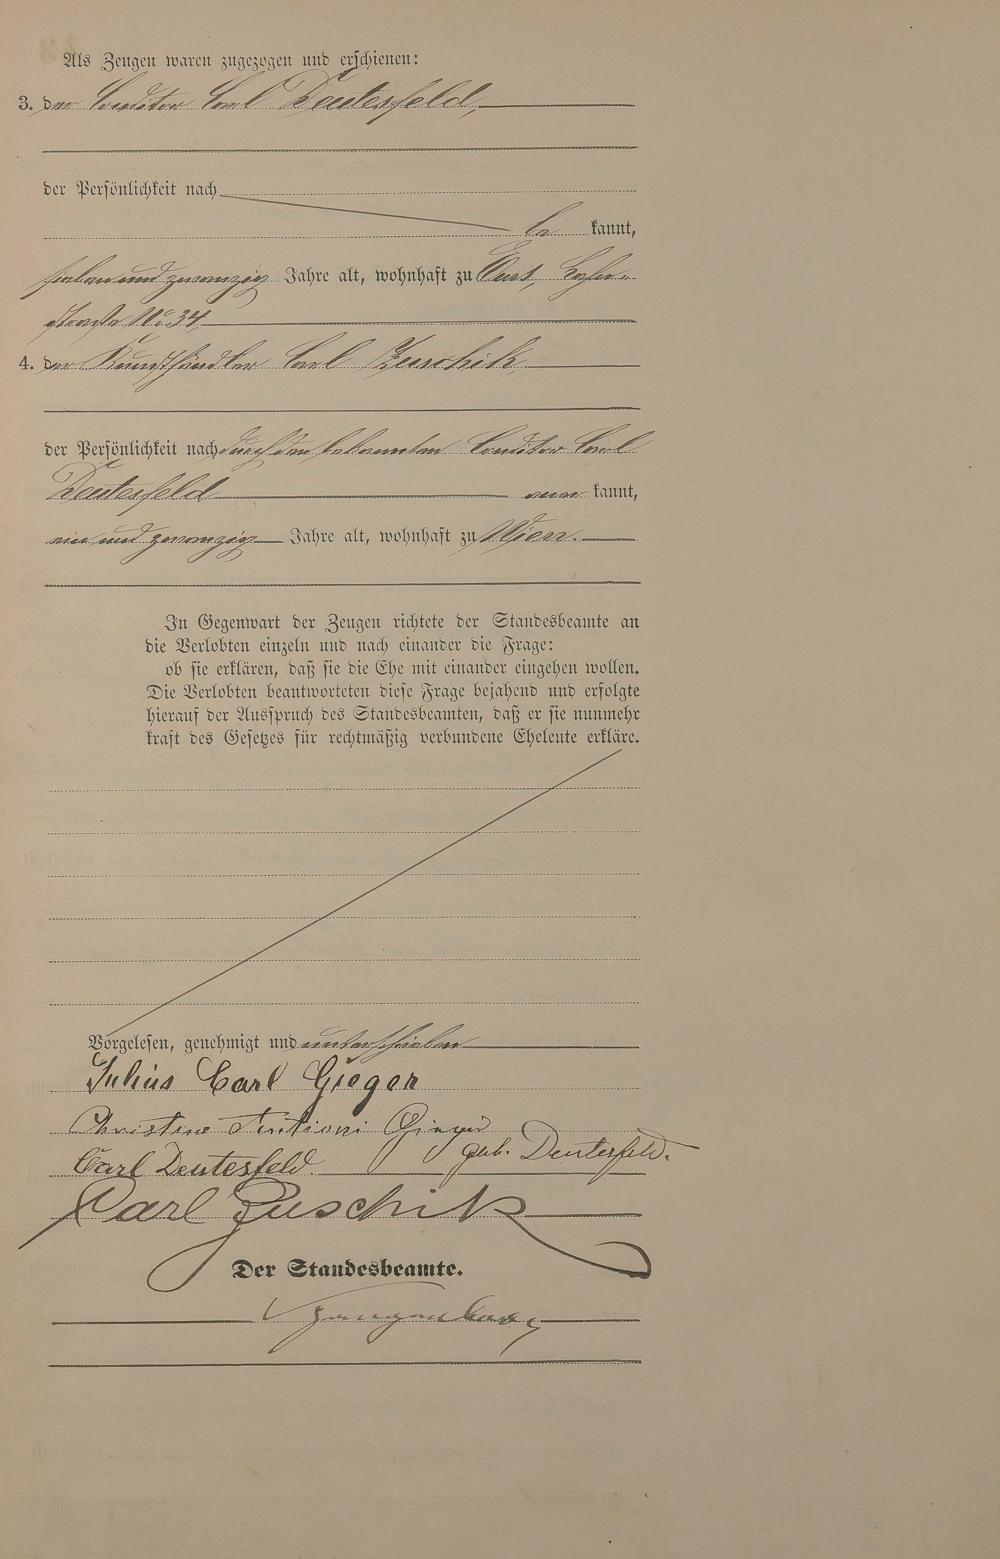 Als Zeugen waren zugezogen und erschienen:
3. der Conditor Carl Deutesfeld,
der Persönlichkeit nach
be kannt,
sieben und zwanzig Jahre alt, wohnhaft zu
straße No 34,
4. der Kunsthändler Carl Zuschik,
der Persönlichkeit nach durch den bekannten Conditor Carl
Deutesfeld aner kannt,
ein und zwanzig Jahre alt, wohnhaft zu Wien.
In Gegenwart der Zeugen richtete der Standesbeamte an
die Verlobten einzeln und nach einander die Frage:
ob sie erklären, daß sie die Ehe mit einander eingehen wollen.
Die Verlobten beantworteten diese Frage bejahend und erfolgte
hierauf der Ausspruch des Standesbeamten, daß er sie nunmehr
kraft des Gesetzes für rechtmäßig verbundene Eheleute erkläre.
Vorgelesen, genehmigt und unterschrieben
Julius Carl Gieger
Christine Gieger
geb. Deutesfeld.
Carl Deutesfeld.
Carl Zuschik
Der Standesbeamte.